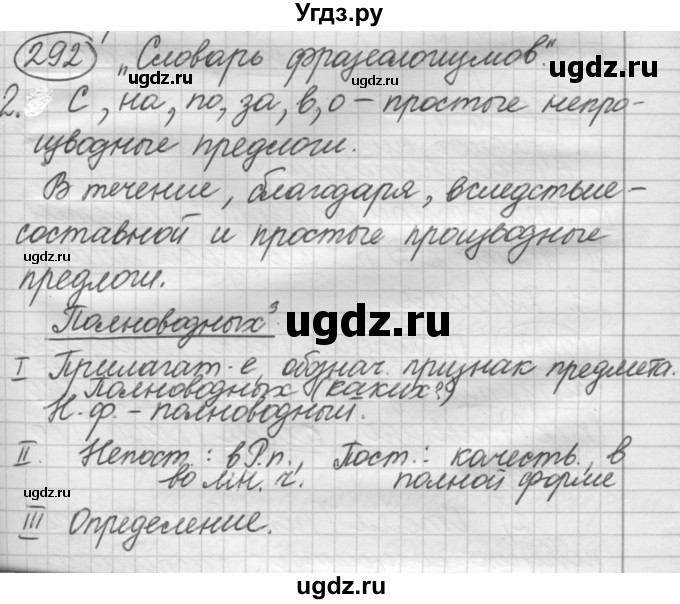 Угдз.ру
292 „Словарь фразеологизмов".
ugdz.ru ugdz.ru
2. С, на, по, за, в, о – простые непро-
изводные предлоги.
ugdz.ru
В течение, благодаря, вследствие –
составной и простые производные
ugdz.ru ugdz.ru
предлоги.
Полноводных³
ugdz.ru
I Прилагат-е, обознач. признак предмета.
Полноводных (каких?)
Н.ф. – полноводный.
ugdz.ru ugdz.ru
II. Непост.: в Р.п., Пост.: качеств., в
во мн. ч. полной форме
ugdz.ru
III Определение.
ugdz.ru ugdz.ru
ugdz.ru